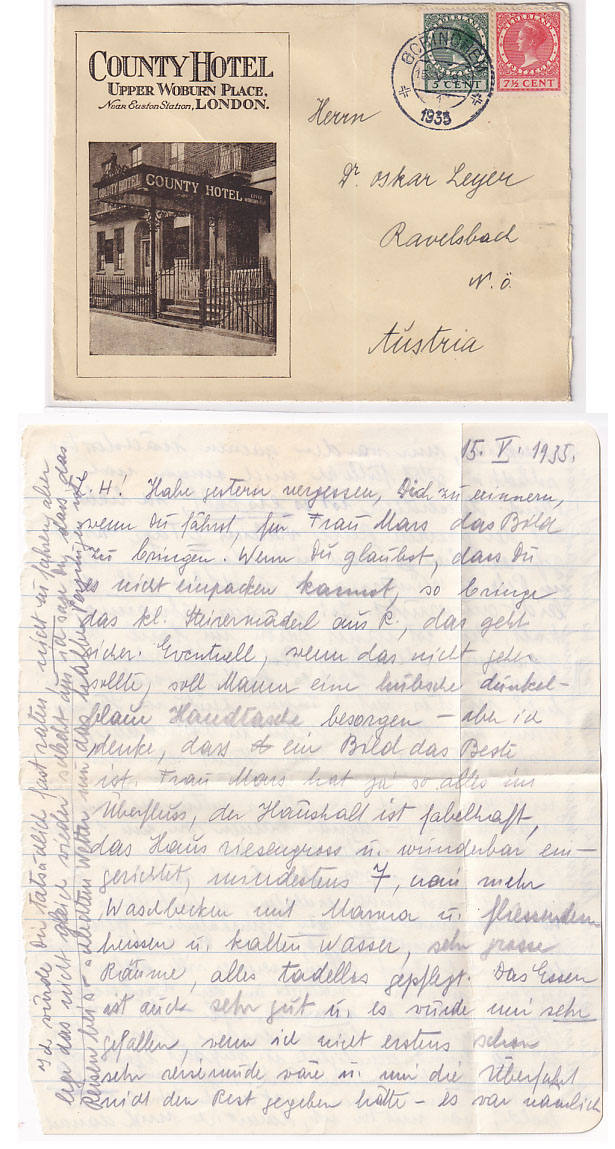 COUNTY HOTEL
UPPER WOBURN PLACE,
Near Euston Station, LONDON.
COUNTY HOTEL
COUNTY HOTEL
NEDERLAND
5 CENT
NEDERLAND
7½ CENT
GORINCHEM
1
1935
Herrn
Dr. Oskar Leyer
Ravelsbach
N. Ö.
Austria
15. V. 1935.
L. H! Habe gestern vergessen, Dich zu erinnern,
wenn Du fährst, für Frau Mars das Bild
zu bringen. Wenn Du glaubst, dass Du
es nicht einpacken kannst, so bringe
das kl. Steirermäderl aus K., das geht
sicher. Eventuell, wenn das nicht gehen
sollte, soll Mama eine hübsche dunkel-
blaue Handtasche besorgen – aber ich
denke, dass ein Bild das Beste
ist. Frau Mars hat ja so alles im
Überfluss, der Haushalt ist fabelhaft,
das Haus riesengross u. wunderbar ein-
gerichtet, mindestens 7, nein mehr
Waschbecken mit Marmor u. fliessendem
heissen u. kalten Wasser, sehr grosse
Räume, alles tadellos gepflegt. Das Essen
ist auch sehr gut u. es würde mir sehr
gefallen, wenn ich nicht erstens schon
sehr reisemüde wäre u. mir die Überfahrt
nicht den Rest gegeben hätte – es war nämlich
Ich würde Dir tatsächlich fast raten, nicht zu fahren, aber
leg das nicht gleich wieder schlecht aus, ich sage Dir, dass das
Reisen bei so schlechtem Wetter nur das halbe Vergnügen ist